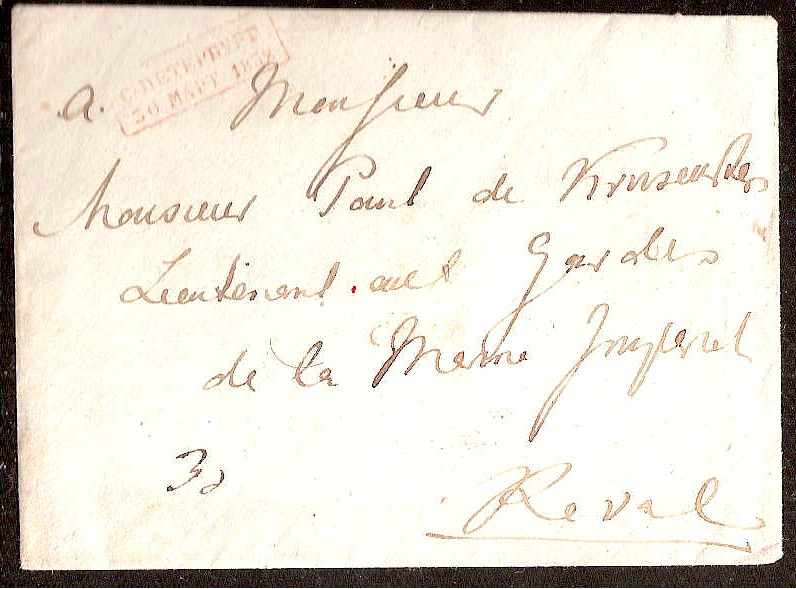 С.ПЕТЕРБУРГ
30 МАРТ
a. Monsieur
Monsieur Paul de Krusenstern
Lieutenant aux Gardes
de la Marine Imperial
30
Reval